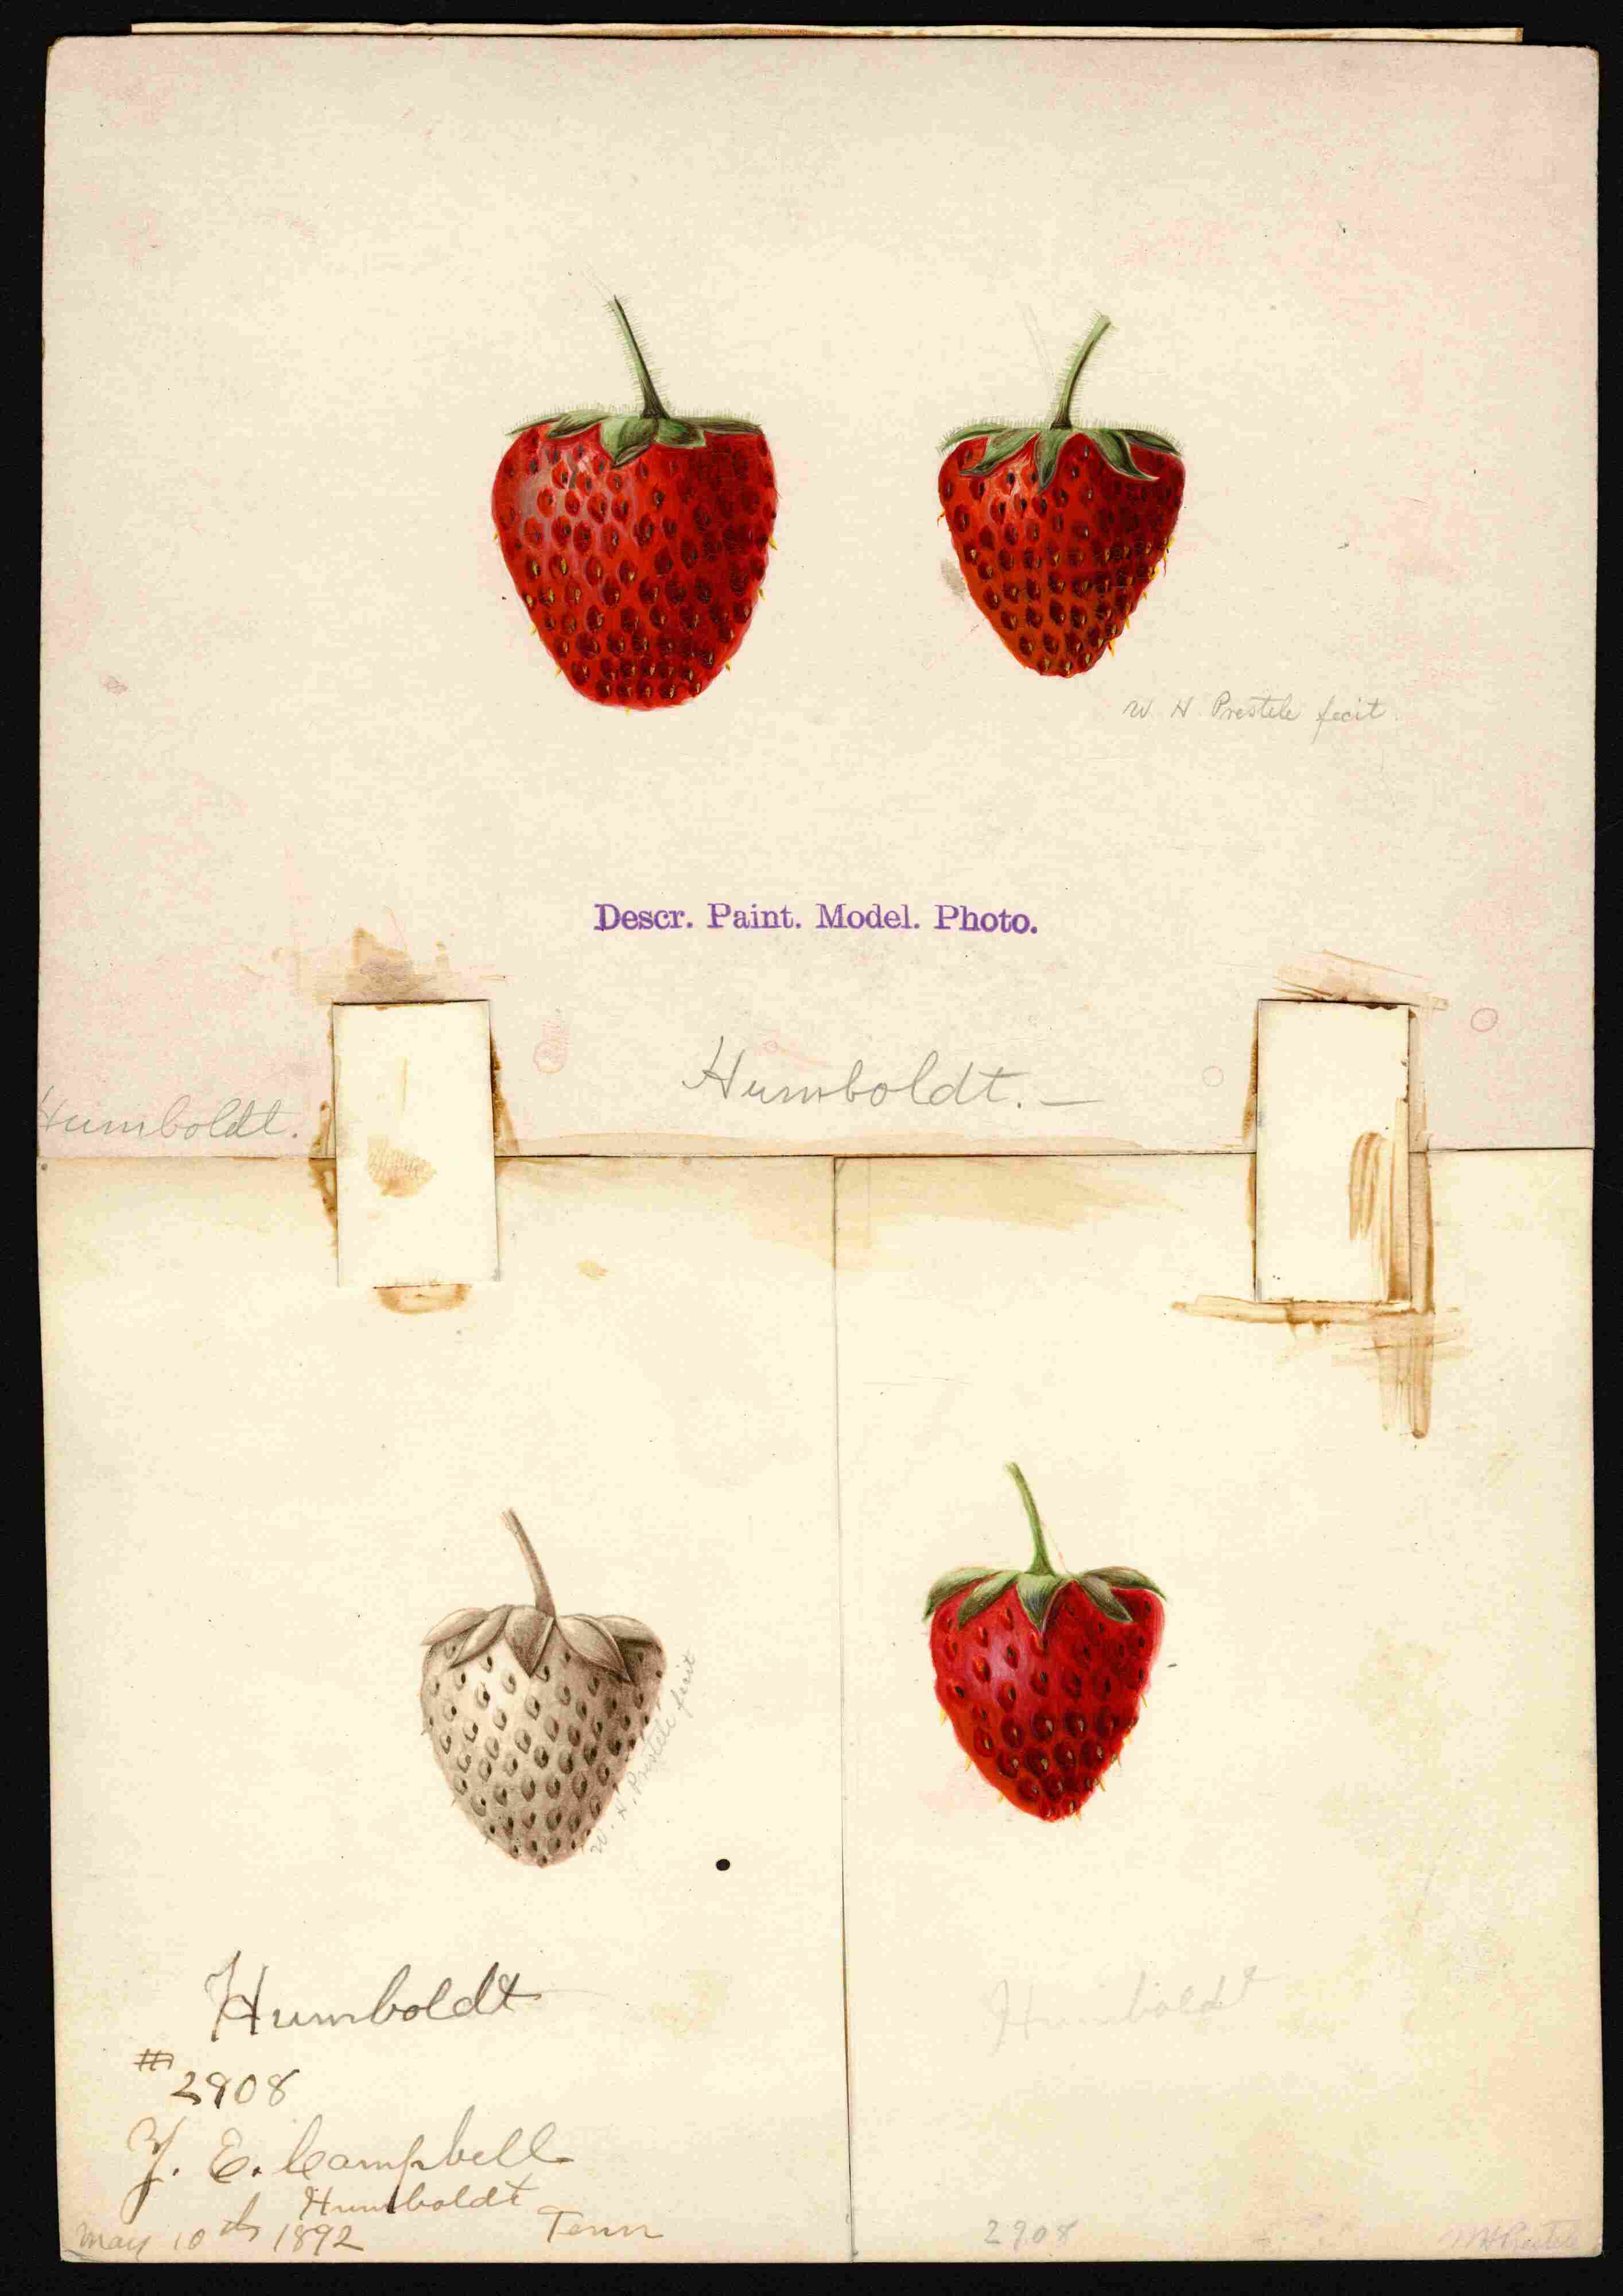 W. H. Prestele fecit.
Descr. Paint. Model. Photo.
Humboldt. —
Humboldt.
W. H. Prestele fecit
Humboldt
#2908
Y. E. Campbell
Humboldt
Tenn
May 10th 1892
Humboldt
2908
W H Prestele